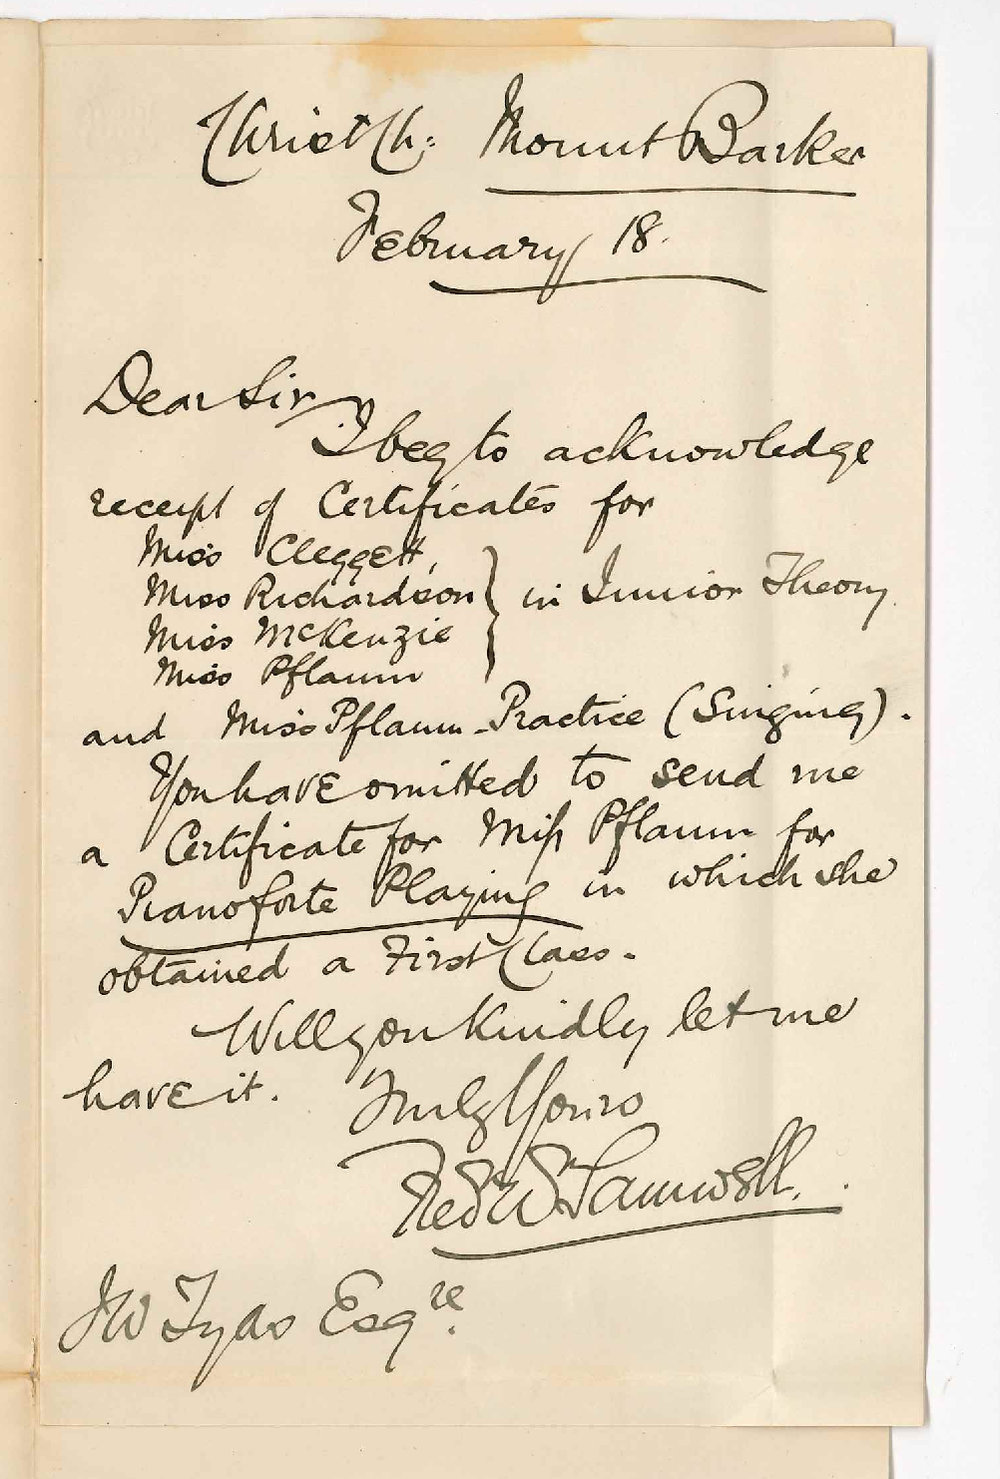 Christ Ch: Mount Barker
February 18.
Dear Sir
I beg to acknowledge
receipt of Certificates for
Miss Cleggett,
Miss Richardson } in Junior Theory.
Miss McKenzie
Miss Pflaum
and Miss Pflaum - Practice (Singing).
You have omitted to send me
a Certificate for Miss Pflaum for
Pianoforte Playing in which she
obtained a First Class.
Will you kindly let me
have it. Truly Yours
Fred W Samwell.
JW Tyas Esqre.